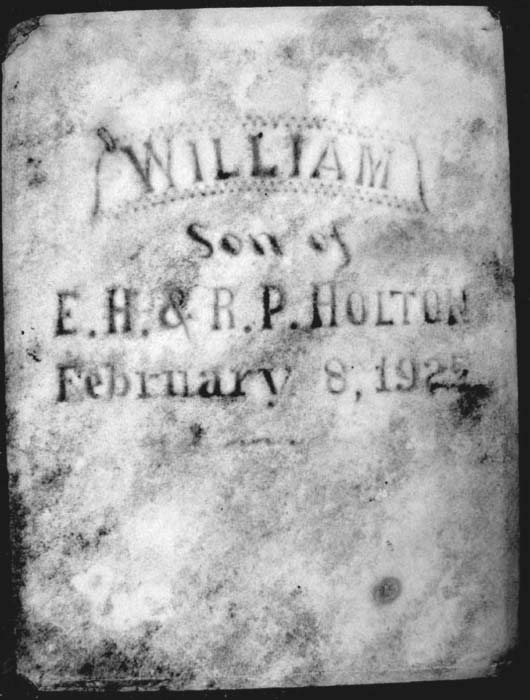 WILLIAM
Son of
E. H. & R. P. HOLTON
February 8,